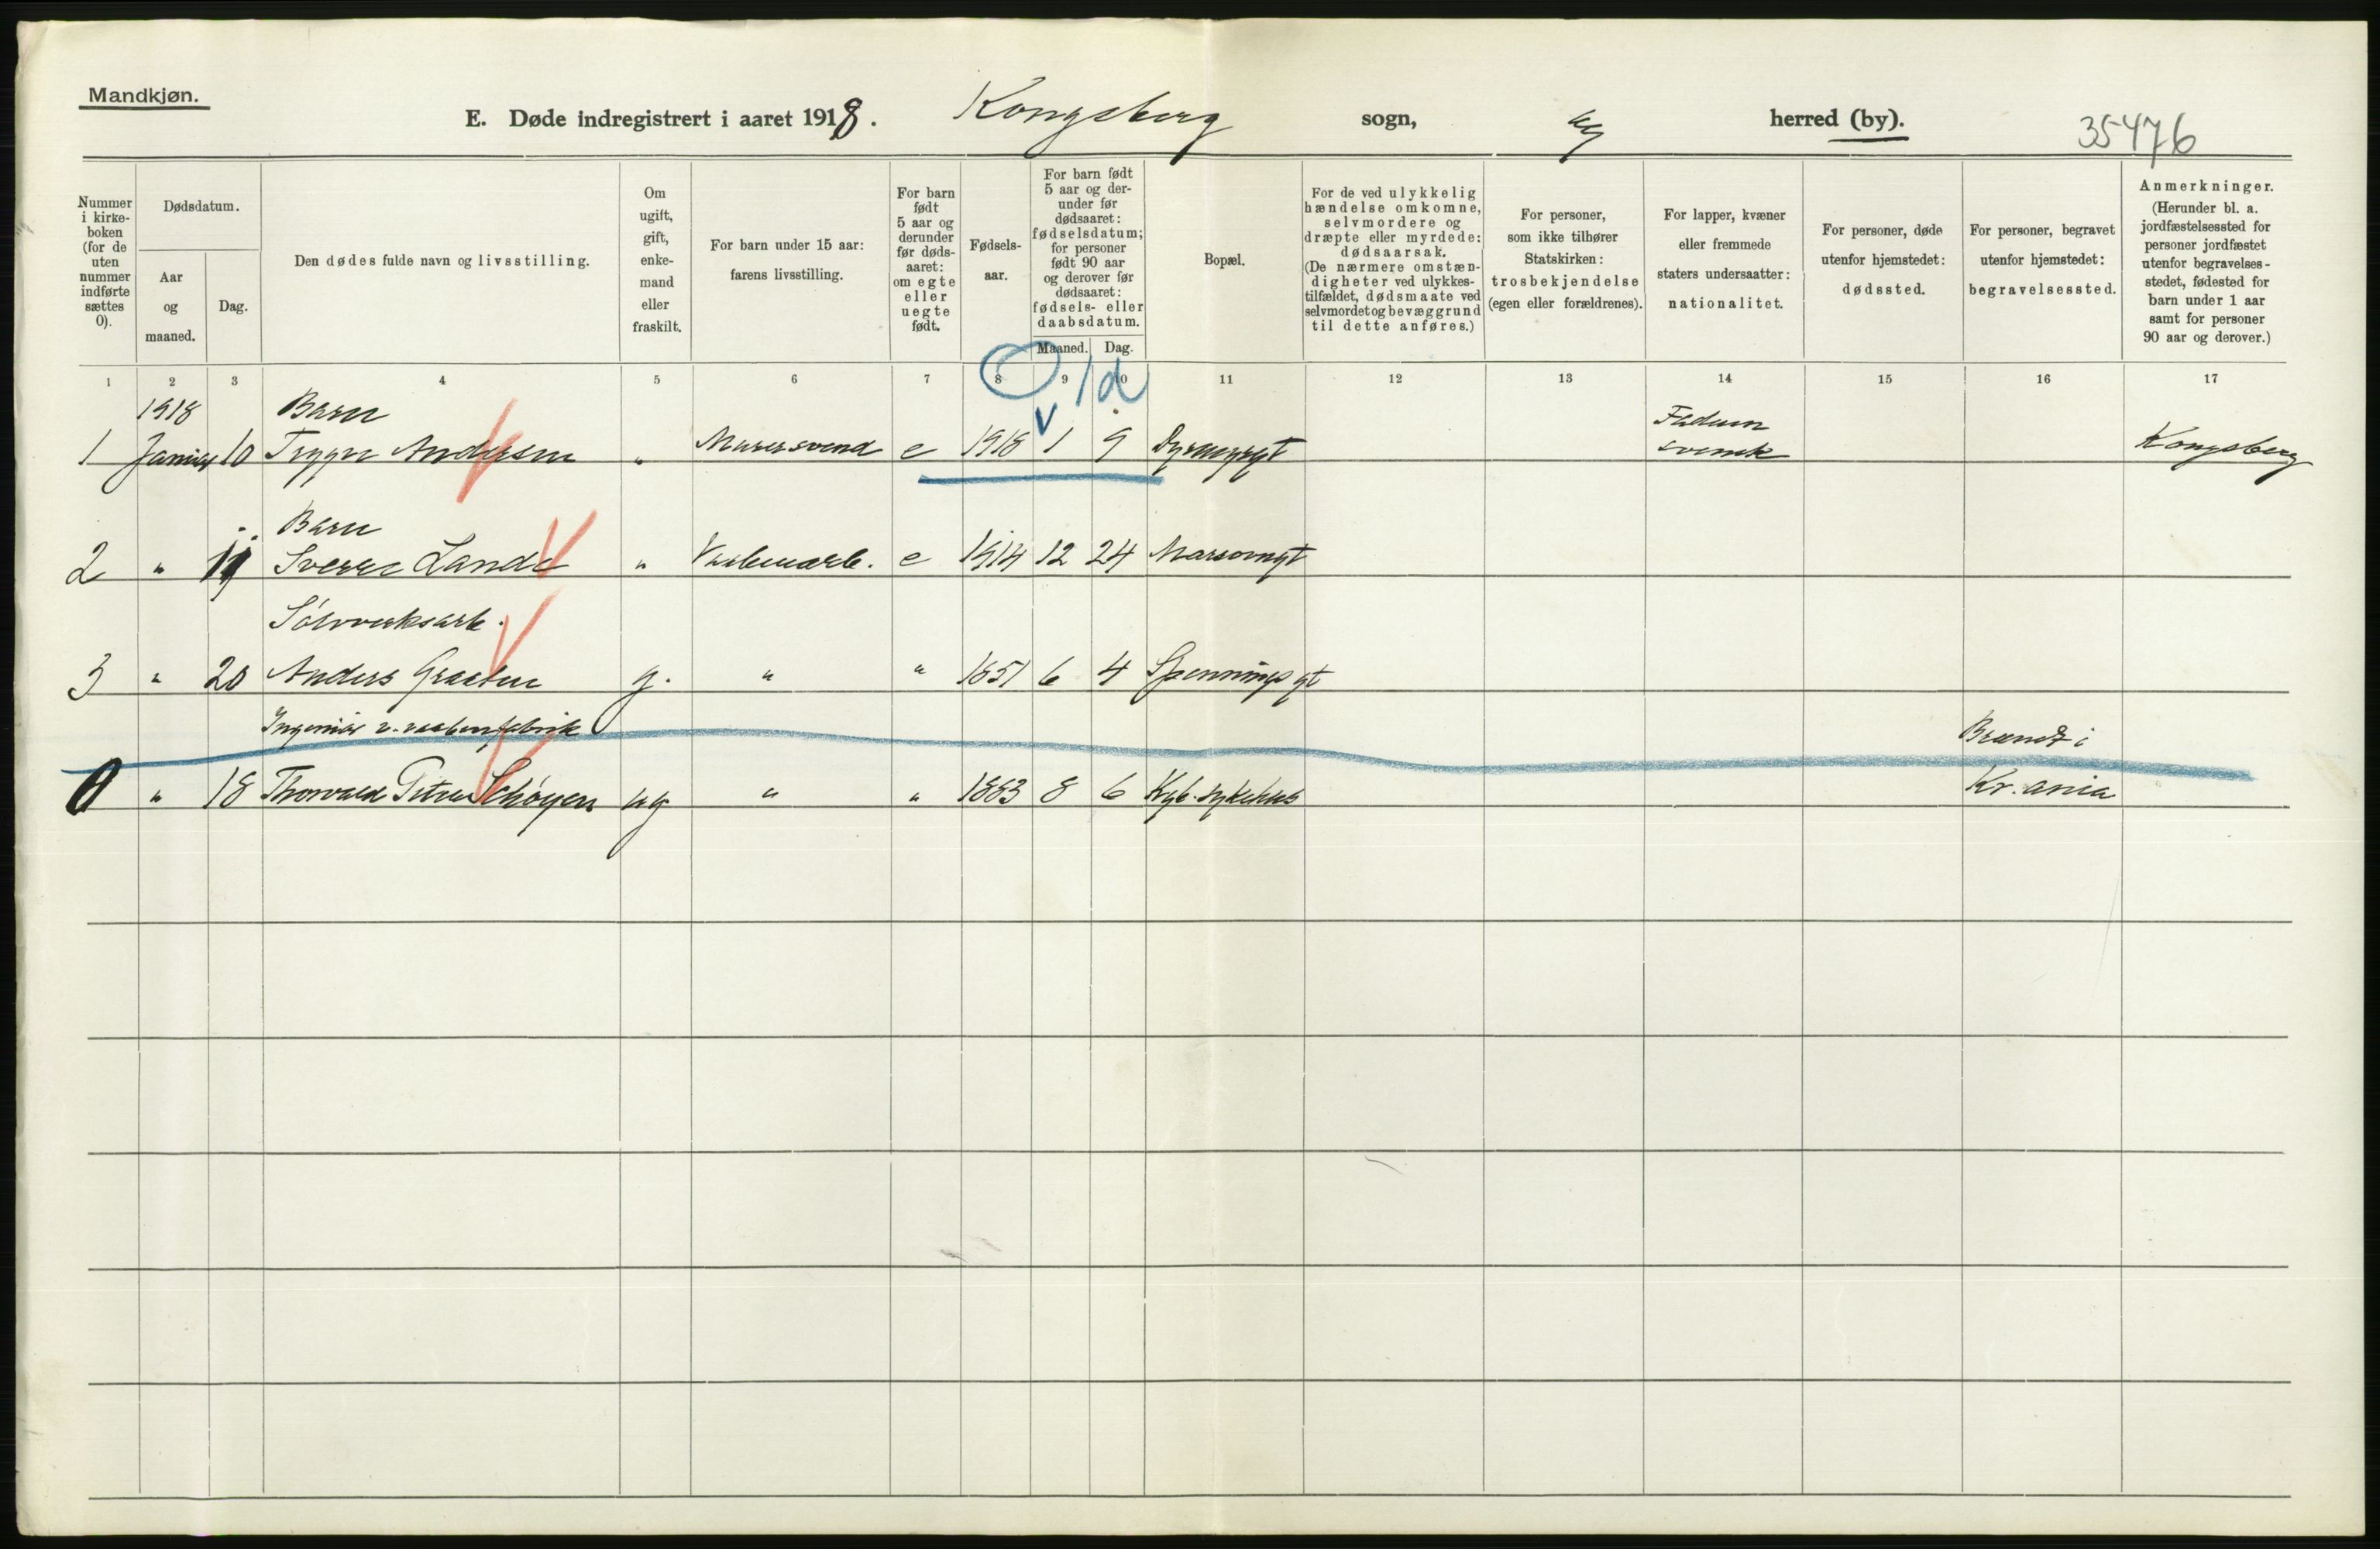 Mandkjøn.
E. Døde indregistrert i aaret 1918. Kongsberg sogn, herred (by). 35476
Nummer i kirke-boken (for de uten nummer indførte sættes 0).
Dødsdatum.
Aar og maaned.
Dag.
Den dødes fulde navn og livsstilling.
Om ugift, gift, enke-mand eller fraskilt.
For barn under 15 aar: farens livsstilling.
For barn født 5 aar og derunder før døds-aaret: om egte eller uegte født.
Fødsels-aar.
For barn født 5 aar og der-under før dødsaaret: fødselsdatum; for personer født 90 aar og derover før dødsaaret: fødsels- eller daabsdatum.
Maaned. Dag.
Bopæl.
For de ved ulykkelig hændelse omkomne, selvmordere og dræpte eller myrdede: dødsaarsak. (De nærmere omstæn-digheter ved ulykkes-tilfældet, dødsmaate ved selvmordet og bevæggrund til dette anføres.)
For personer, som ikke tilhører Statskirken: trosbekjendelse (egen eller forældrenes).
For lapper, kvæner eller fremmede staters undersaatter: nationalitet.
For personer, døde utenfor hjemstedet: dødssted.
For personer, begravet utenfor hjemstedet: begravelsessted.
Anmerkninger. (Herunder bl. a. jordfæstelsessted for personer jordfæstet utenfor begravelses-stedet, fødested for barn under 1 aar samt for personer 90 aar og derover.)
1 2 3 4 5 6 7 8 9 10 11 12 13 14 15 16 17
1d
1918 Barn
1 Januar 10 Trygve Andersen " Murersvend e 1918 1 9 svensk Kongsberg
Barn
2 " Sverre Lande " e 1914 12 24
Sølvverksarb.
3 " 20 Anders Graaten g. " " 1851 6 4 Spenningsgt
Ingeniør v. vaabenfabrik Brændt i
0 " 18 Thorvald Petter Schøyen ug " " 1883 8 6 Kgb. sykehus Kr.ania